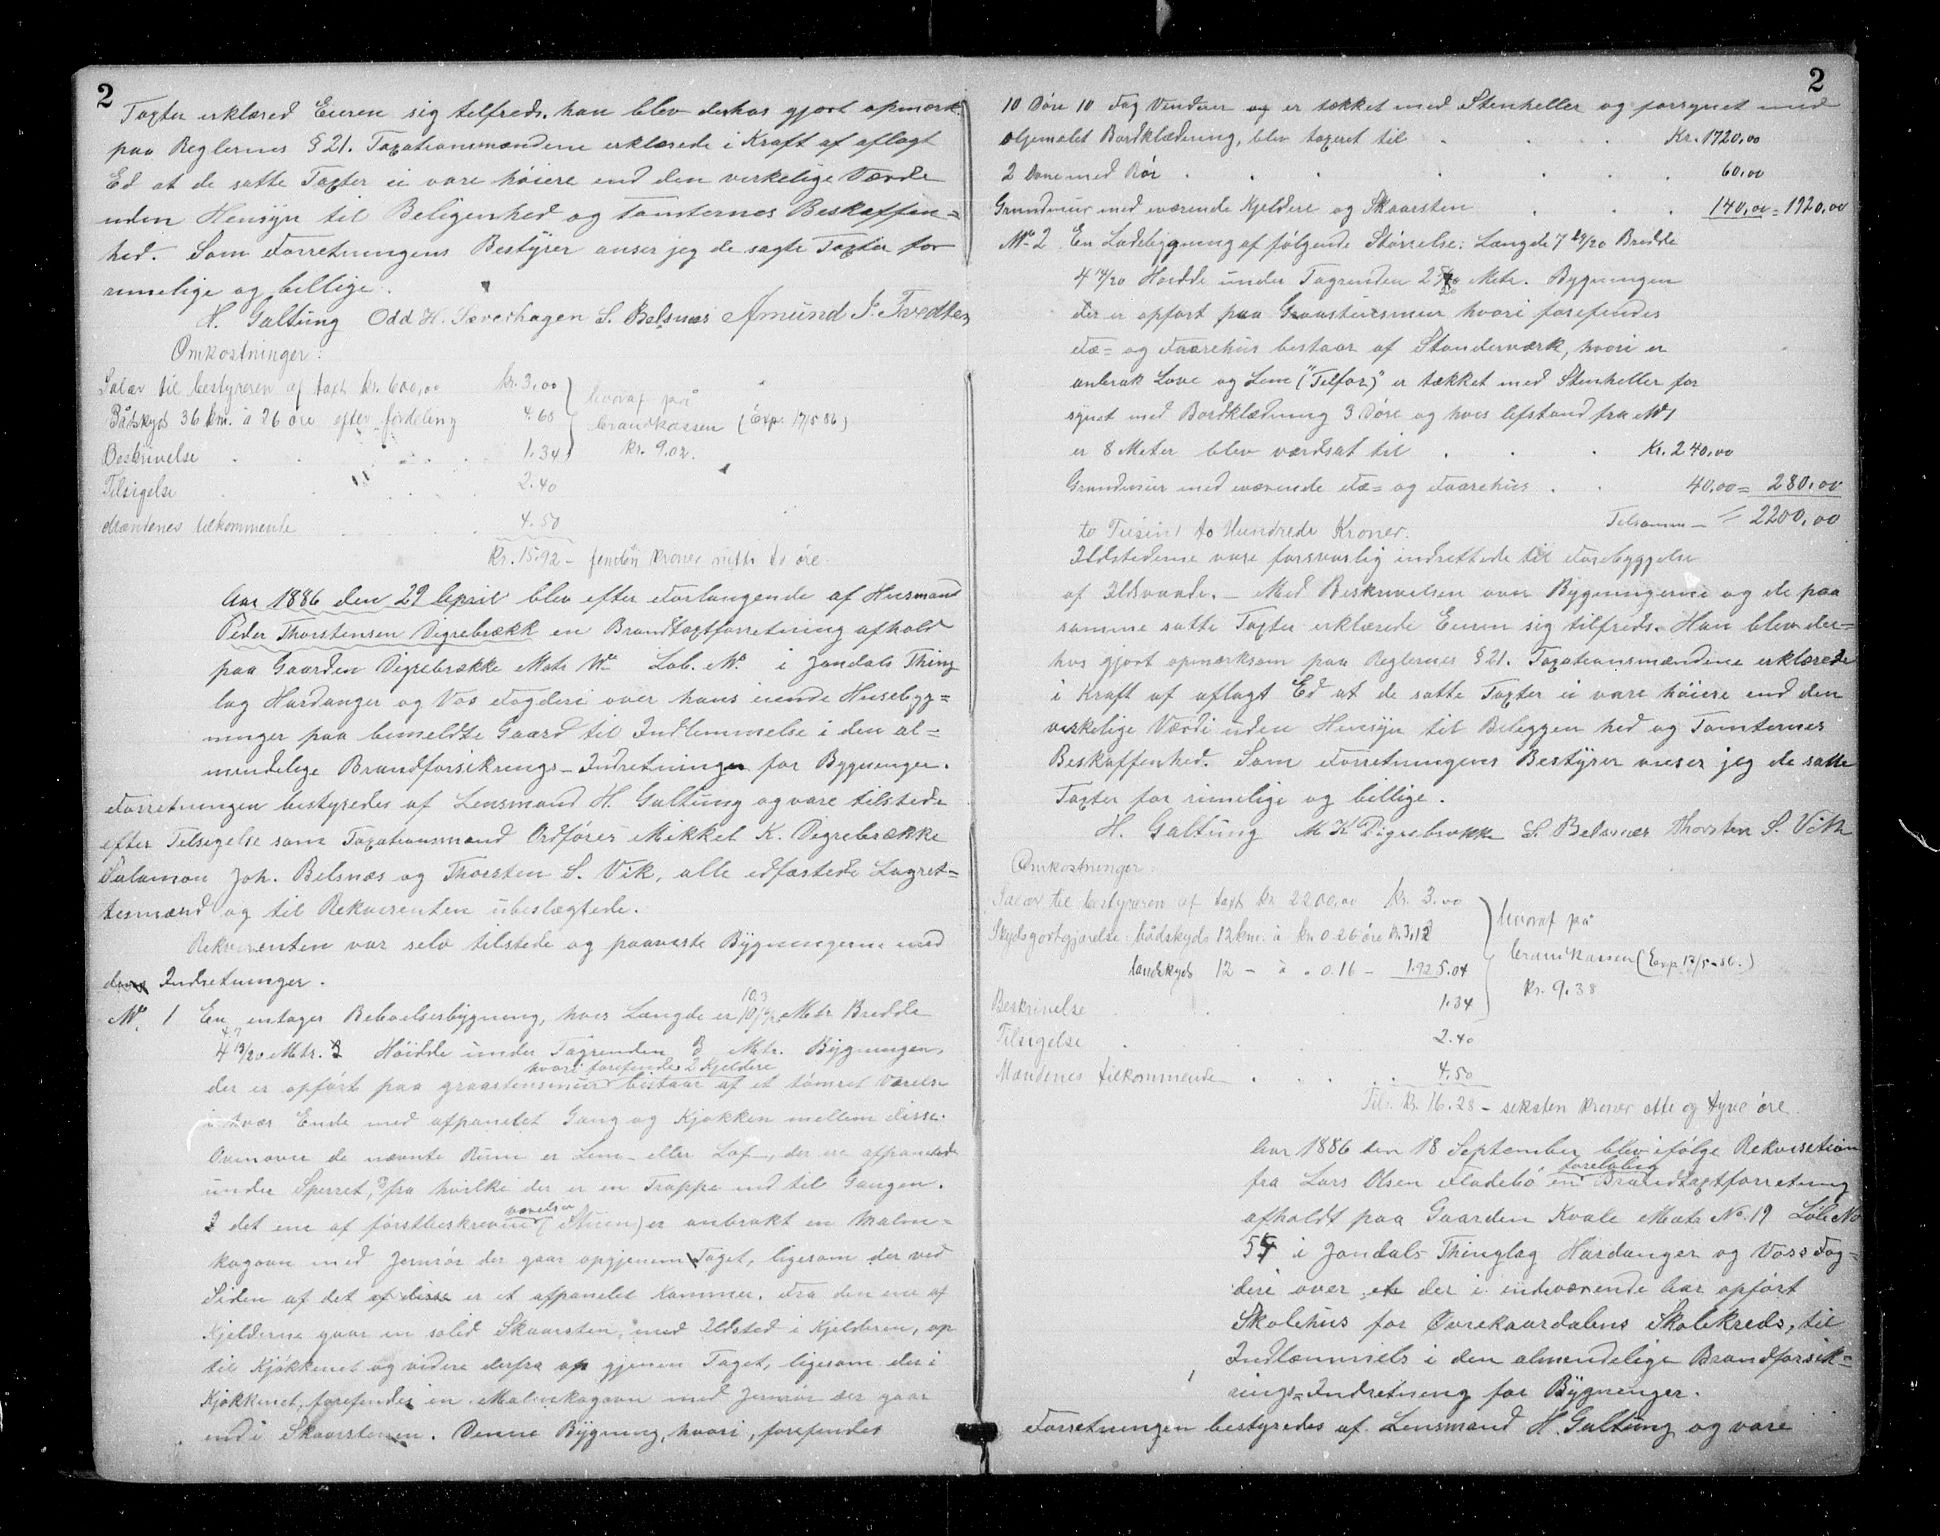 2
Taxter erklæred Eieren sig tilfreds, han blev derhos gjort opmærk.
paa Reglernes § 21. Taxationsmændene erklærede i Kraft af aflagt
Ed at de satte Taxter ei vare høiere end den virkelige Værdi
uden Hensyn til Beligenhed og Tomternes Beskaffen=
hed. Som Forretningens Bestyrer anser jeg de sagte Taxter for
rimelige og billige.
H. Galtung Odd H. Sæverhagen S. Belsnæs Amund J. Tvedten
Omkostninger:
Salær til bestyreren af taxt kr. 600,00 kr. 3,00
Båtskyds 36 km. à 26 öre efter fordeling 4.68
Beskrivelse 1.34
hvoraf på
brandkassen (Exp. 17/5 86)
kr. 9.02.
Tilsigelse 2.40
Mændenes tilkommende 4.50
Kr. 15.92 – femten kroner nitti to öre.
Aar 1886 den 29 April blev efter Forlangende af Husmand
Peder Thorstensen Digrebrækk en Brandtaxtforretning afhold
paa Gaarden Digrebrække Matr No. Løb. No. i Jondals Thing
lag Hardanger og Vos Fogderi over hans eiende Husebyg=
ninger paa bemeldte Gaard til Indlemmelse i den al=
mindelige Brandforsikrings-Indretning for Bygninger.
Forretningen bestyredes af Lensmand H. Galtung og vare tilstede
efter Tilsigelse som Taxationsmænd Ordfører Mikkel K. Digrebrække
Salamon Joh. Belsnæs og Thorsten S. Vik, alle edfæstede Lagret=
tesmænd og til Rekvirenten ubeslægtede.
Rekvirenten var selv tilstede og paaviste Bygningerne med
deres Indretninger.
No. 1 En entages Beboelsesbygning, hvis Længde er 10 6/20 Metr. Bredde
10.3
4.7
4 13/20 Metr. Höidde under Tagrenden 3 Metr. Bygningen,
hvori forefindes 2 Kjeldere
der er opført paa graastensmur bestaar af et tømret Værelse
i hvær Ende med afpanelet Gang og Kjøkken mellem disse.
Ovenover de nævnte Rum er Lem- eller Loft, der ere afpanelede
under Sperret, fra hvilke der er en Trappe ned til Gangen.
værelse
I det ene af førstbeskrevne (Stuen) er anbrakt en Malm=
kagovn med Jernrör der gaar opgjenem Taget, ligesom der ved
Siden af det af disse er et afpanelet Kammer. Fra den ene af
Kjelderne gaar en solid Skaarsten, med Ildsted i Kjelderen, op
til Kjøkkenet og videre derfra op gjenem Taget, ligesom der i
Kjøkkenet, forefindes en Malmkagovn med Jernrör der gaar
ind i Skaarstenen. Denne Bygning, hvori, forefindes
2
10 Döre 10 Fag Vinduer og er tækket med Stenheller og forsynet med
oljemalet Bordklædning, blev taxeret til Kr. 1720,00
2 Ovne med Rör 60,00
Grundmur med værende Kjeldere og Skaarsten 140,00 = 1920,00
No. 2 En Ladebygning af følgende Størrelse: Længde 7 19/20 Bredde
4 14/20 Høidde under Tagrenden 2 Metr. Bygningen
der er opført paa Graastensmur hvori forefindes
Fæ- og Faarehus bestaar af Stenderværk, hvori er
anbrakt Love og Lem ("Telfar") er tækket med Stenheller for
synet med Bordklædning 3 Döre og hvis Afstand fra No. 1
er 8 Meter blev værdsat til Kr. 240,00
Grundmur med værende Fæ- og Faarehus 40,00 = 280,00
to Tusind to Hundrede Kroner. Tilsamm – 2200,00
Ildstederne vare forsvarlig indrettede til Forebyggelse
af Ildsvaade. – Med Beskrivelsen over Bygningerne og de paa
samme satte Taxter erklærede Eieren sig tilfreds. Han blev der=
hos gjort opmærksom paa Reglernes § 21. Taxationsmændene erklærede
i Kraft af aflagt Ed at de satte Taxter ei vare høiere end den
virkelige Værdi uden Hensyn til Beliggenhed og Tomternes
Beskaffenhed. Som Forretningens Bestyrer anser jeg de satte
Taxter for rimelige og billige.
H. Galtung M K Digrebrekk S. Belsnæs Thorsten S. Vik
Omkostninger
Salær til bestyreren af taxt kr 2200,00 kr. 3.00
Skydsgodtgjørelse: bådskyds 12 km. à kr. 0.26 öre kr. 3,12
landskyds 12 – à " 0.16 – 1.92 5.04
Beskrivelse 1.34
hvoraf på
brandkassen (Exp. 17/5-86.)
kr. 9.38
Tilsigelse 2.40
Mændenes tilkommende 4.50
Tils. kr. 16.28 – seksten kroner otte og tyve öre.
Aar 1886 den 18 September blev ifølge Rekvisetion
foreløbig
fra Lars Olsen Fladebö en Brandtaxtforretning
afholdt paa Gaarden Kvale Matr No. 19 Løb. No
54 i Jondals Thinglag Hardanger og Voss Fog=
deri over et der i indeværende Aar opført
Skolehus for Øvrekaardalens Skolekreds, til
Indlemmels i den almendelige Brandforsik=
rings=Indretning for Bygninger.
Forretningen bestyredes af Lensmand H. Galtung og vare